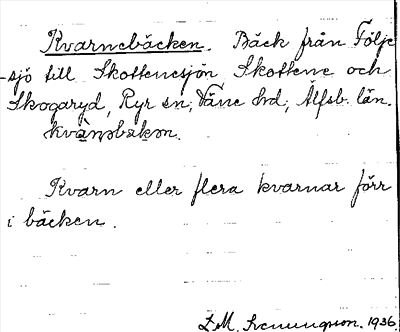 Kvarnebäcken. Bäck från Följe
-sjö till Skottenesjön, Skottene och
Skogaryd, Ryr sn, Väne hd, Älfsb. län.
kvà̀nəbɛkən.
Kvarn eller flera kvarnar förr
i bäcken.
D.M. Svenungson. 1936.